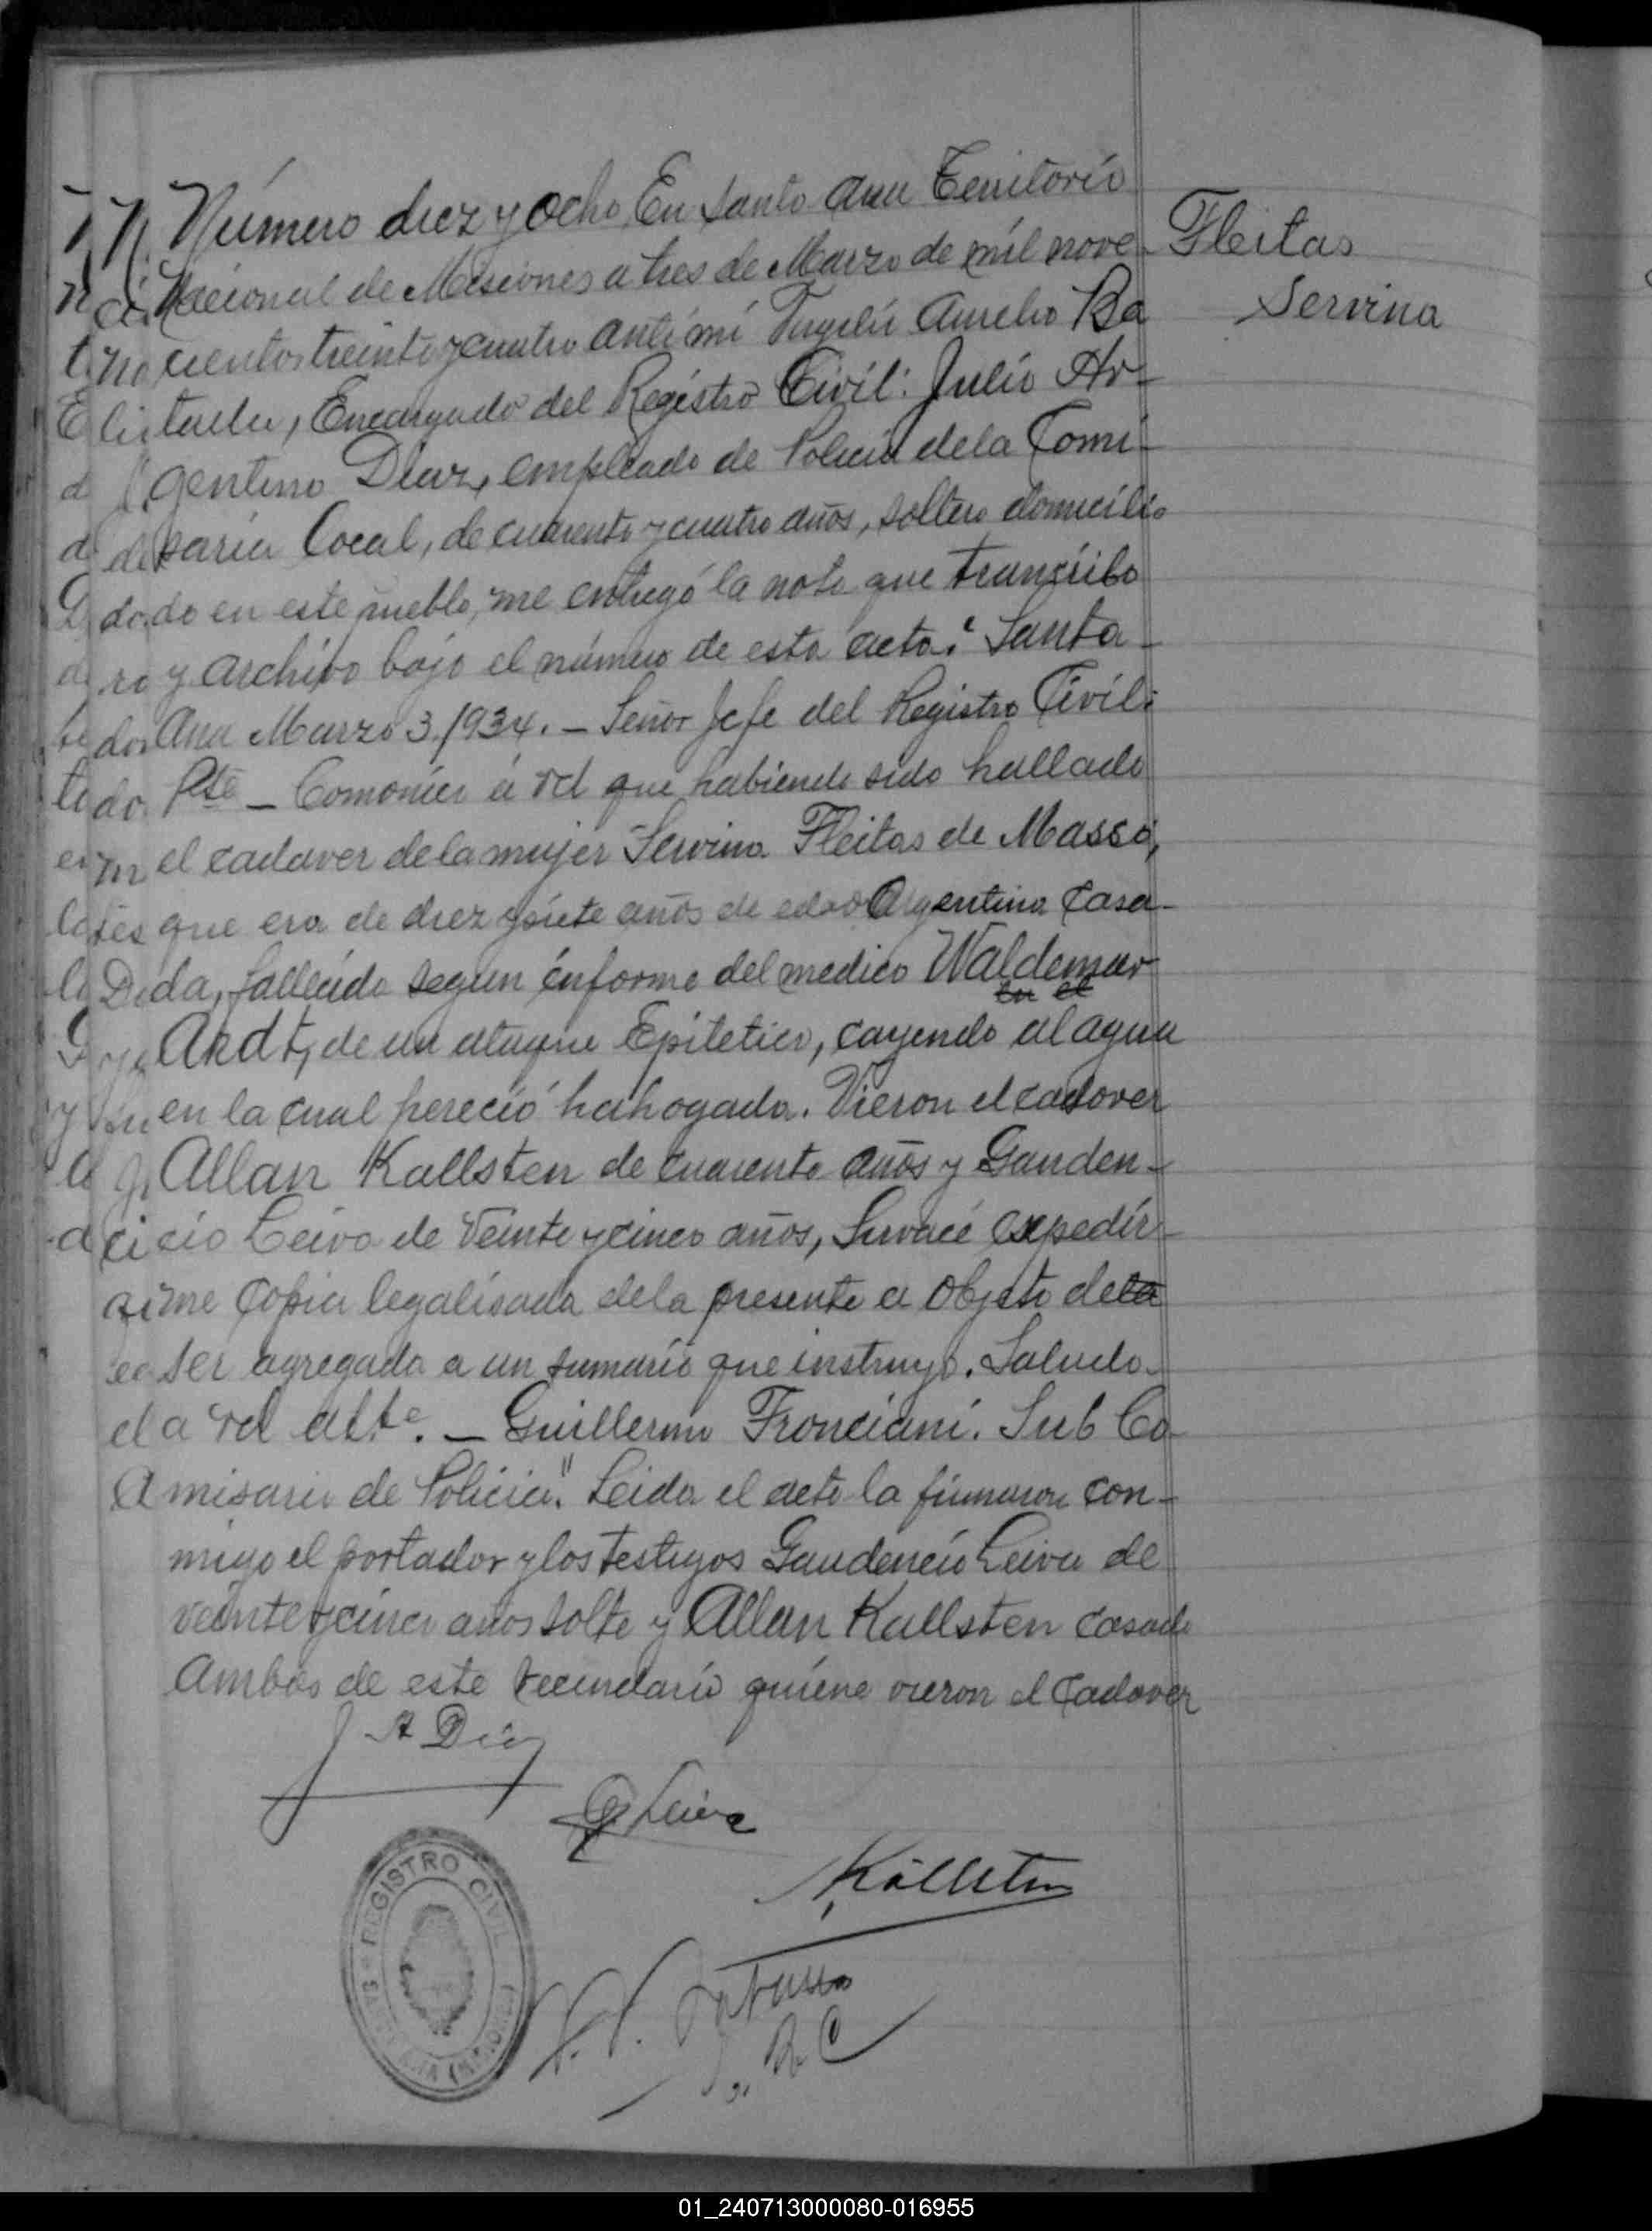 Número diez y ocho En Santa Ana Territorio
Nacional de Misiones a tres de Marzo de mil nove-
cientos treinta y cuatro ante mi Aurelio Ba
Encargado del Registro Civil: Julio Ar-
gentino Diaz, empleado de Policia de la Comi-
saria Local, de cuarenta y cuatro años, soltero domicilia
do en este pueblo, me entregó la nota que transcribo
y archivo bajo el número de esta acta: "Santa
Ana Marzo 3/934. - Señor Jefe del Registro Civil:
Pte - Comonico á Vd que habiendo sido hallado
el cadaver de la mujer Servina Fleitas de Massó,
que era de diez y siete años de edad Argentina Casa-
da, fallecida segun informe del medico Waldemar
en el
Ardt, de un ataque Epiletico, cayendo al agua
en la cual pereció hahogada. Vieron el cadaver
Allan Kallsten de cuarenta años y Gauden-
cio Leiva de Veinte y cinco años, Expedir-
me Copia legalisada de la presente a Objeto de la
ser agregada a un sumario que instruyo. Saludo
a Vd atte. - Guillermo Fronciani. Sub Co
misario de Policia." Leida el acta la firmaron con-
migo el portador y los testigos Gaudencio Leiva de
veinte y cinco años solte y Allan Kallsten casado
Ambos de este vecindario quiene vieron el Cadaver
J A Diaz
G Leiva
Källsten
R C
REGISTRO CIVIL
SANTA ANA (MISIONES)
Fleitas
Servina
01_240713000080-016955